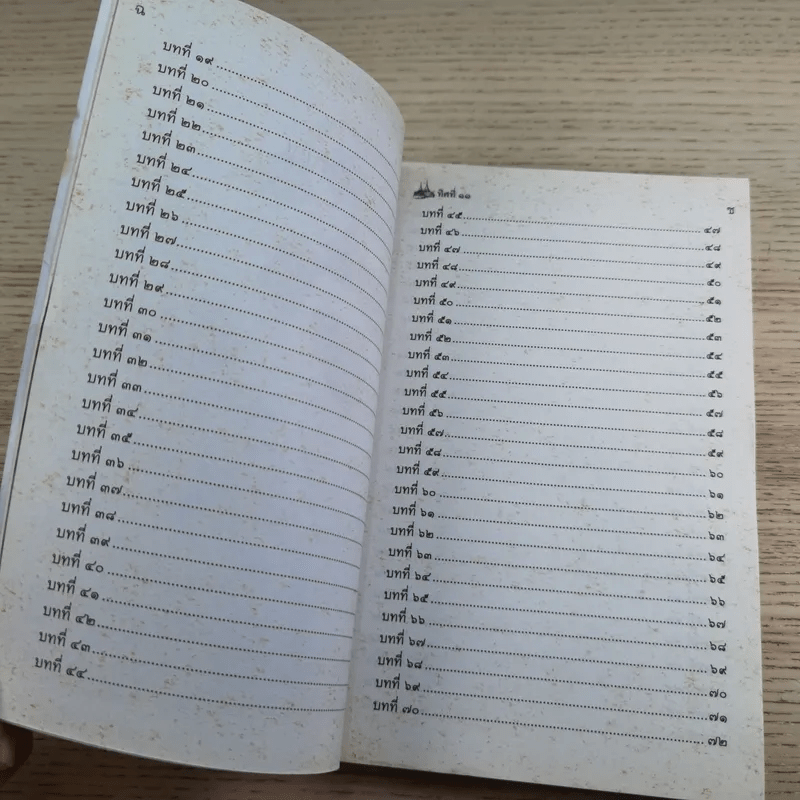 ฉ
บทที่ ๑๙
บทที่ ๒๐
บทที่ ๒๑
บทที่ ๒๒
บทที่ ๒๓
บทที่ ๒๔
บทที่ ๒๕
บทที่ ๒๖
บทที่ ๒๗
บทที่ ๒๘
บทที่ ๒๙
บทที่ ๓๐
บทที่ ๓๑
บทที่ ๓๒
บทที่ ๓๓
บทที่ ๓๔
บทที่ ๓๕
บทที่ ๓๖
บทที่ ๓๗
บทที่ ๓๘
บทที่ ๓๙
บทที่ ๔๐
บทที่ ๔๑
บทที่ ๔๒
บทที่ ๔๓
บทที่ ๔๔
ทิศที่ ๑๑ ช
บทที่ ๔๕ ๔๗
บทที่ ๔๖ ๔๘
บทที่ ๔๗ ๔๙
บทที่ ๔๘ ๕๐
บทที่ ๔๙ ๕๑
บทที่ ๕๐ ๕๒
บทที่ ๕๑ ๕๓
บทที่ ๕๒ ๕๔
บทที่ ๕๓ ๕๕
บทที่ ๕๔ ๕๖
บทที่ ๕๕ ๕๗
บทที่ ๕๖ ๕๘
บทที่ ๕๗ ๕๙
บทที่ ๕๘ ๖๐
บทที่ ๕๙ ๖๑
บทที่ ๖๐ ๖๒
บทที่ ๖๑ ๖๓
บทที่ ๖๒ ๖๔
บทที่ ๖๓ ๖๕
บทที่ ๖๔ ๖๖
บทที่ ๖๕ ๖๗
บทที่ ๖๖ ๖๘
บทที่ ๖๗ ๖๙
บทที่ ๖๘ ๗๐
บทที่ ๖๙ ๗๑
บทที่ ๗๐ ๗๒